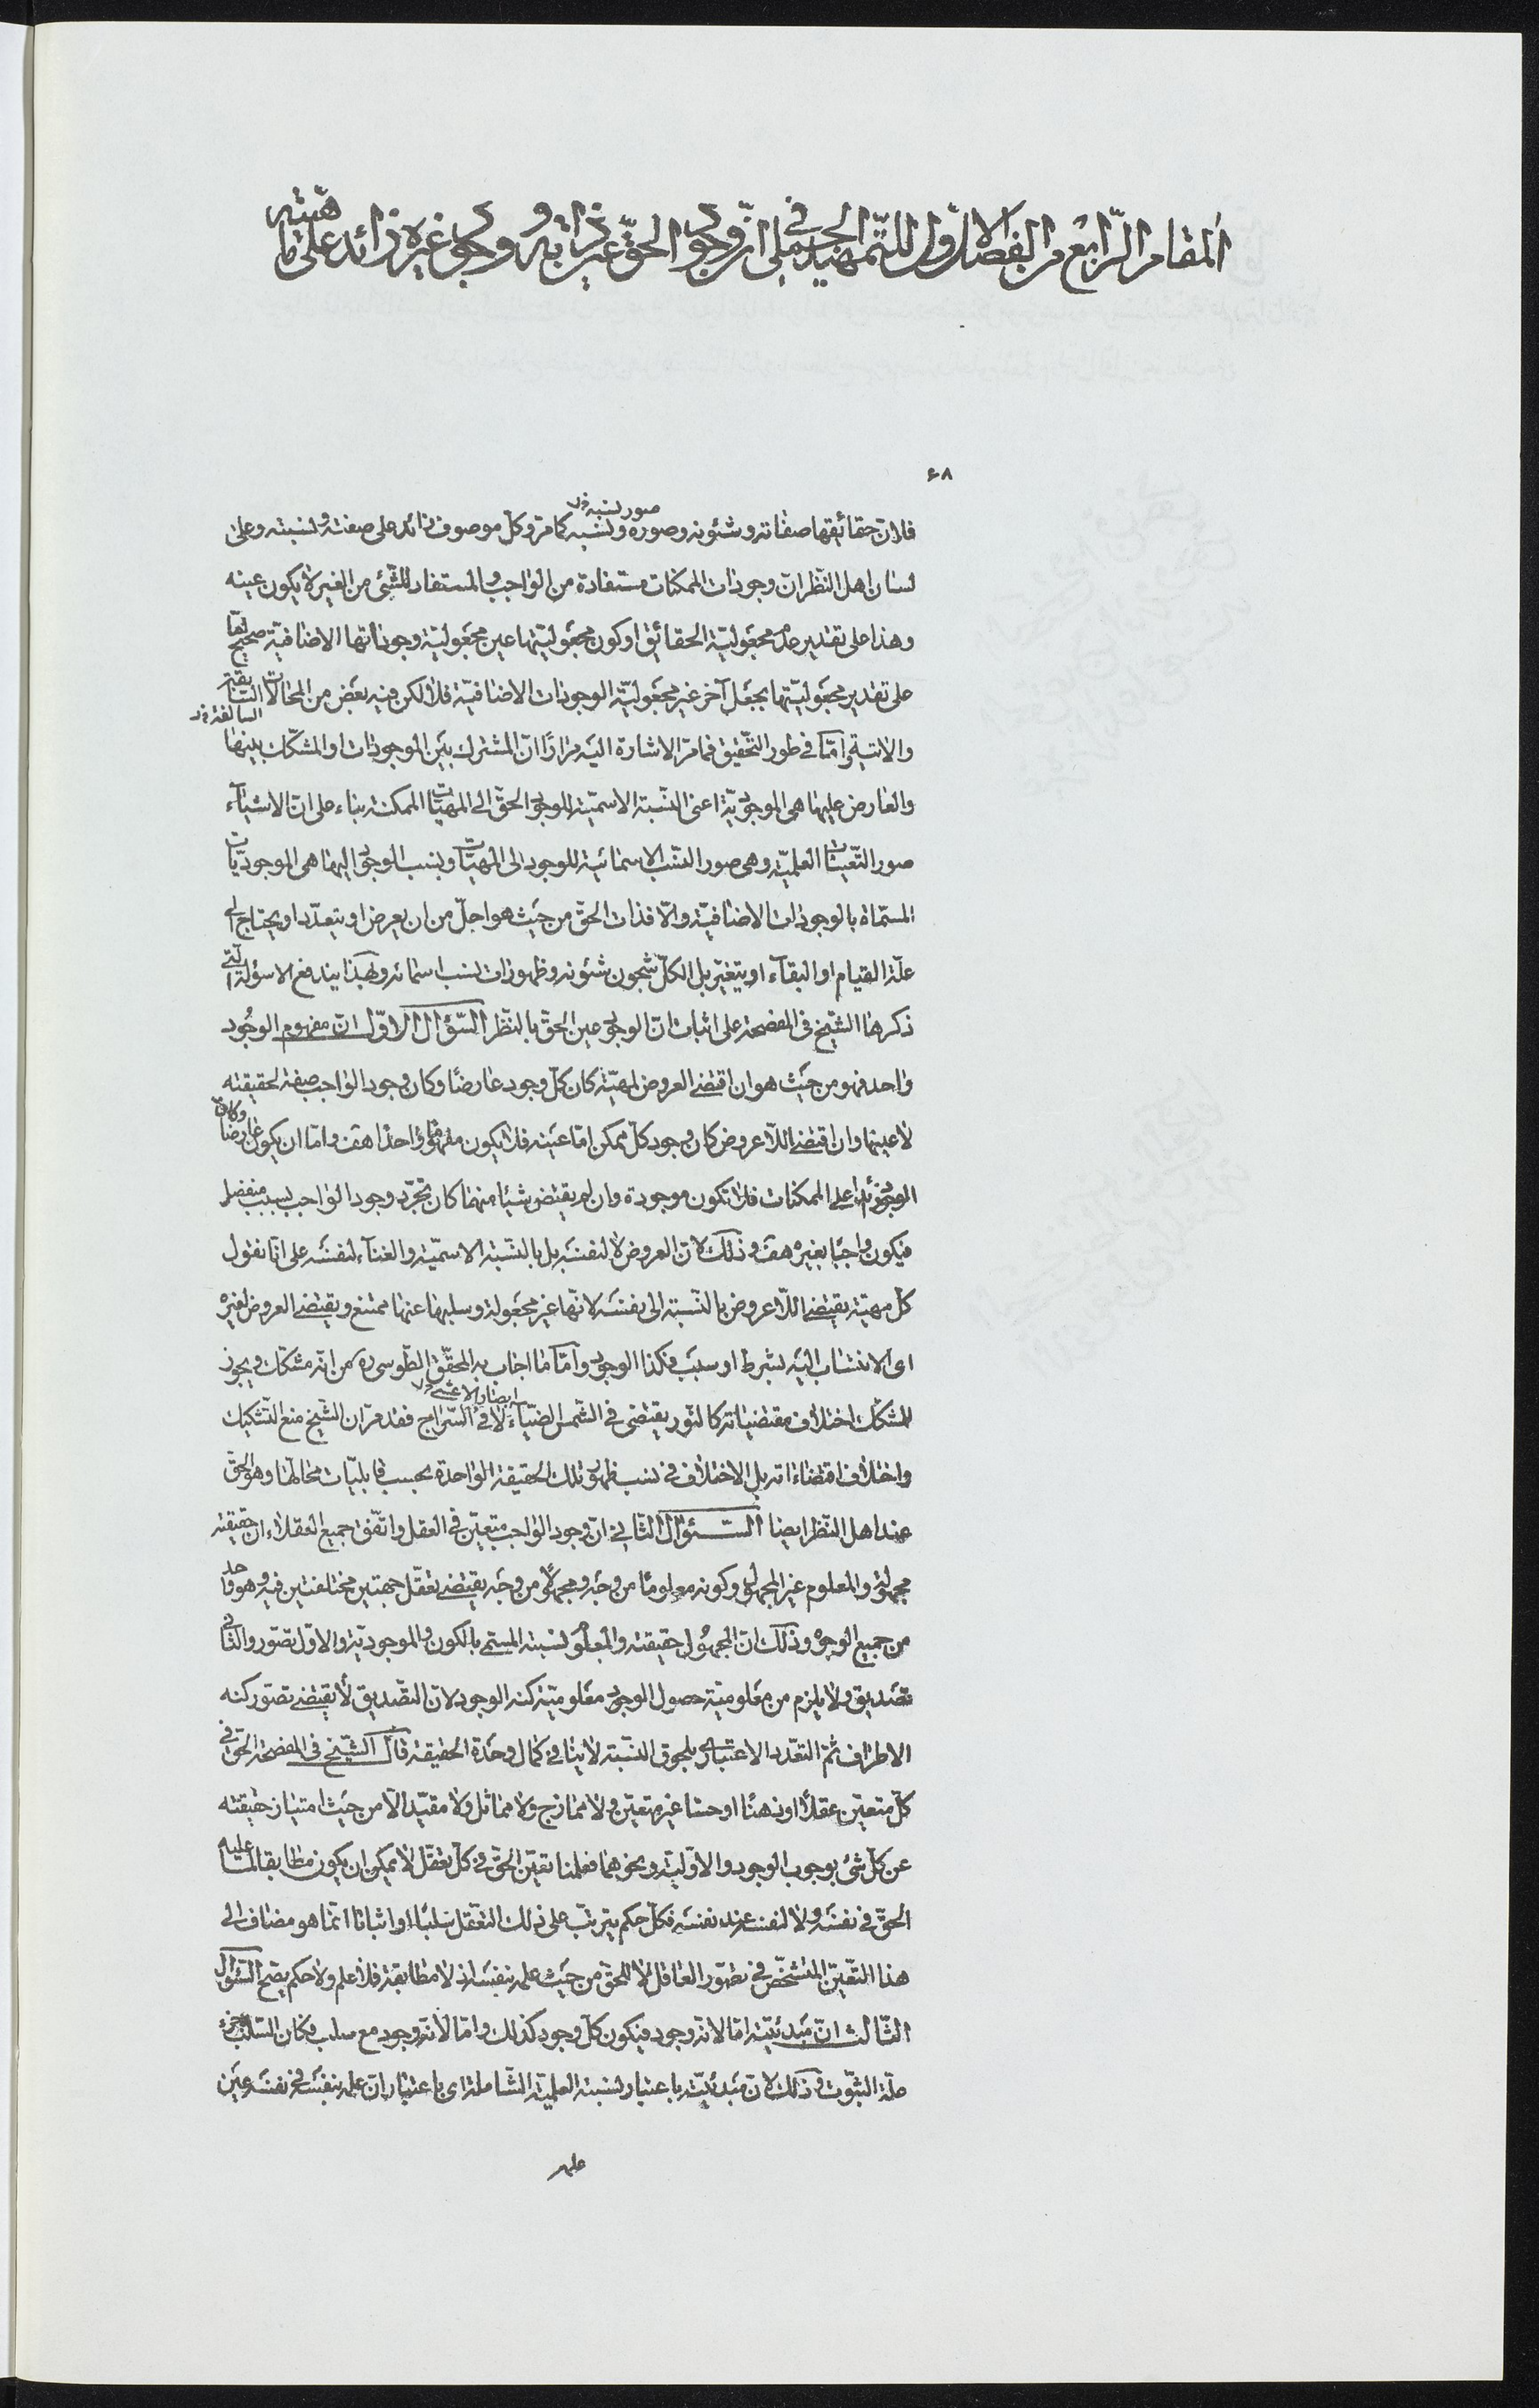 المقام الرّابع من الفصل الاوّل للتّمهيد الجملى فى انّ وجود الحقّ عين ذاته و وجود غيره زائد على ماهيّته
۶۸
صور نسبه خ‌ل
فلانّ حقائقها صفاته و شئونه و صوره و نسبه كما مرّ و كلّ موصوف زائد على صفته و نسبته و على
لسان اهل النّظر انّ وجودات الممكنات مستفادة من الواجب و المستفاد للشّئ من الغير لا يكون عينه
و هذا على تقدير عدم مجعوليّة الحقائق او كون مجعوليّتها عين مجعوليّة وجوداتها الاضافيّة صحيح امّا
على تقدير مجعوليّتها بجعل آخر غير مجعوليّة الوجودات الاضافيّة فلا لكن فيه بعض من المحالات السّابقة
السالفة خ‌ل
والاتية و امّا فى طور التّحقيق فما مرّ الاشارة اليه مرارًا انّ المشترك بين الموجودات او المشكّك بينها
والعارض عليها هى الموجوديّة اعنى النّسبة الاسميّة للوجود الحقّ الى المهيّات الممكنة بناء على انّ الاشيآء
صور التّعيّنات العلميّة و هى صور النّسب الاسمائية للوجود الى المهيّات و نسب الوجود اليها هى الموجوديّات
المسمّاة بالوجودات الاضافيّة و الّا فذات الحقّ من حيث هو اجلّ من ان يعرض او يتعدّد او يحتاج الى
علّة القيام او البقآء او يتغيّر بل الكلّ شجون شئونه و ظهورات نسب اسمائه و بهذا يندفع الاسؤلة الّتى
ذكرها الشّيخ فى المفصحة على اثبات انّ الوجود عين الحقّ بالنّظر السّؤال الاوّل انّ مفهوم الوجُود
واحد فهو من حيث هو ان اقتضى العروض لمهيّة كان كلّ وجود عارضًا و كان وجود الواجب صفة لحقيقته
لا عينها و ان اقتضى اللّاعروض كان وجود كلّ ممكن امّا عينه فلا يكون مفهومًا واحدًا هف و امّا ان يكون عارضا
وكان
الوجود زائدا على الممكنات فلا تكون موجودة و ان لم يقتض شيئا منهما كان تجرّد وجود الواجب بسبب منفصل
فيكون واجبًا بغيره هف و ذلك لانّ العروض لا لنفسه بل بالنّسبة الاسميّة و الغنآء لنفسه على انّا نقول
كلّ مهيّة يقتضى اللّاعروض بالنّسبة الى نفسه لانّها غير مجعولة و سلبها عنها ممتنع و يقتضى العروض لغيره
اى الانتساب اليه بشرط او سبب فكذا الوجود و امّا ما اجاب به المحقّق الطّوسى ره من انّه مشكّك و يجوز
للمشكّك اختلاف مقتضياته كالنّور يقتضى فى الشّمس الضّيآء لا فى السّراج فقد مرّ انّ الشّيخ منع التّشكيك
و اختلاف اقتضاءاته بل الاختلاف فى نسب ظهور تلك الحقيقة الواحدة بحسب قابليّات محالّها و هو الحقّ
عند اهل النّظر ايضا السّؤال الثّانى انّ وجود الواجب متعيّن فى العقل و اتّفق جميع العقلاء انّ حقيقته
مجهولة و المعلوم غير المجهول و كونه معلومًا من وجه و مجهولًا من وجه يقتضى تعقّل جهتين مختلفتين فيه و هو واحد
من جميع الوجوه و ذلك انّ المجهُول حقيقته و المعلوم نسبته المسمّى بالكون و الموجوديّة و الاوّل تصّور و الثّانى
تصديق و لا يلزم من معلوميّة حصول الوجود معلوميّة كنه الوجود لانّ التصّديق لا يقتضى تصوّر كنه
الاطراف ثمّ التعّدد الاعتبارى بلحوق النسّبة لا ينافى كمال وحدة الحقيقة قال الشّيخ فى المفصحة الحقّ فى
كلّ متعيّن عقلًا او ذهنًا او حسّا غير متعيّن و لا ممازج و لا مماثل و لا مقيّد الّا من حيث امتياز حقيقته
عن كلّ شئ بوجوب الوجود و الاوّليّة و نحوهما فعلمنا تعيّن الحقّ فى كلّ تعقّل لا يمكن ان يكون مطابقا لما عليه
الحقّ فى نفسه و لا لنفسه عند نفسه فكلّ حكم يترتّب على ذلك التعّقل سلبًا او اثباتا انّما هو مضاف الى
هذا التّعيّن المتشخّص فى تصّور العاقل لا للحقّ من حيث علمه بنفسه اذ لا مطابقة فلا علم و لا حكم يصحّ السّؤال
الثّالث انّ مبدئيّته امّا لانّه وجود فيكون كلّ وجود كذلك و امّا لانّه وجود مع سلب فكان السّلب جزء
علّة الثّبوت و ذلك لانّ مبدئيّته باعتبار نسبته العلميّة الشّاملة اى باعتبار انّ علمه بنفسه فى نفسه عين
علمه